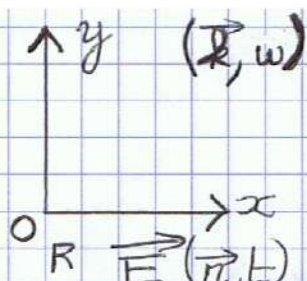 y (k⃗, ω)
O x
R E⃗(r⃗, t)